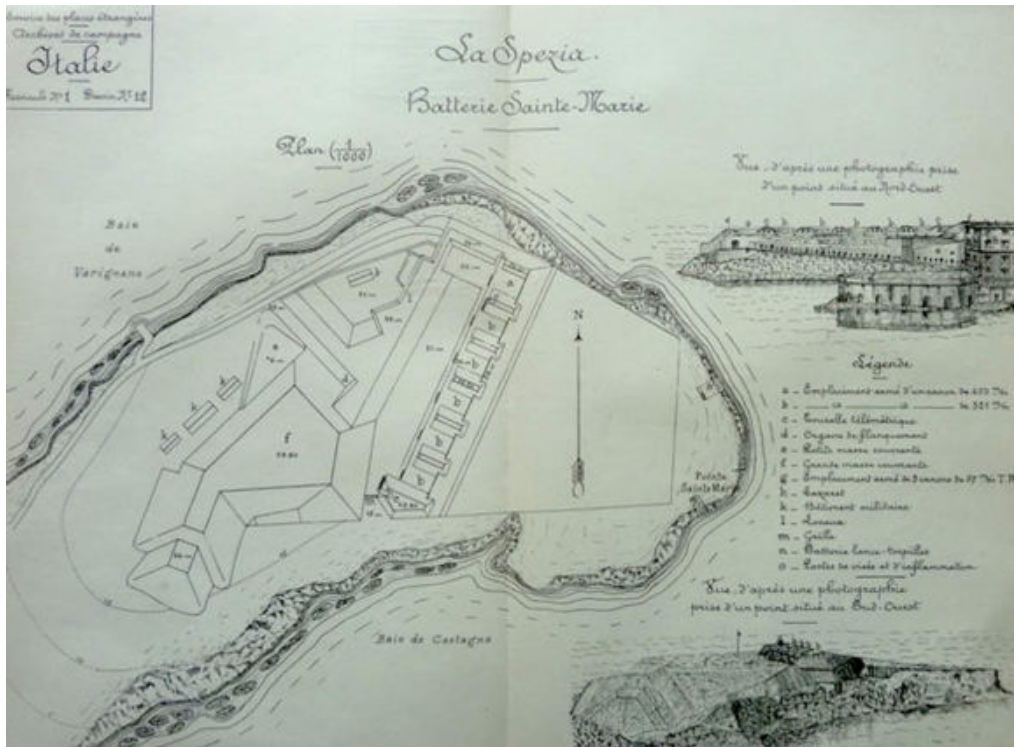 Service des places étrangères
Archives de campagne
Italie
Fascicule N° 1 Dessin N° 12
La Spezia.
Batterie Sainte-Marie
Plan (1/1000)
Baie
de
Varignano
N
f
Pointe
Sainte Marie
Baie de Castagna
Vue d'après une photographie prise
d'un point situé au Nord-Ouest
Légende
a - Emplacement armé d'un canon de
b -
c - Tourelle télémétrique
d - Organe de flanquement
e - Petite masse couvrante
f - Grande masse couvrante
g - Emplacement armé de 3 canons de 57
h - Lazaret
k - Bâtiment militaire
l - Locaux
m - Grille
n - Batterie lance-torpilles
o - Postes de visée et d'inflammation
Vue d'après une photographie
prise d'un point situé au Sud-Ouest